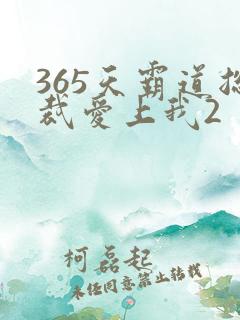 365天霸道总
裁爱上我2
柯磊起
未经同意禁止转载